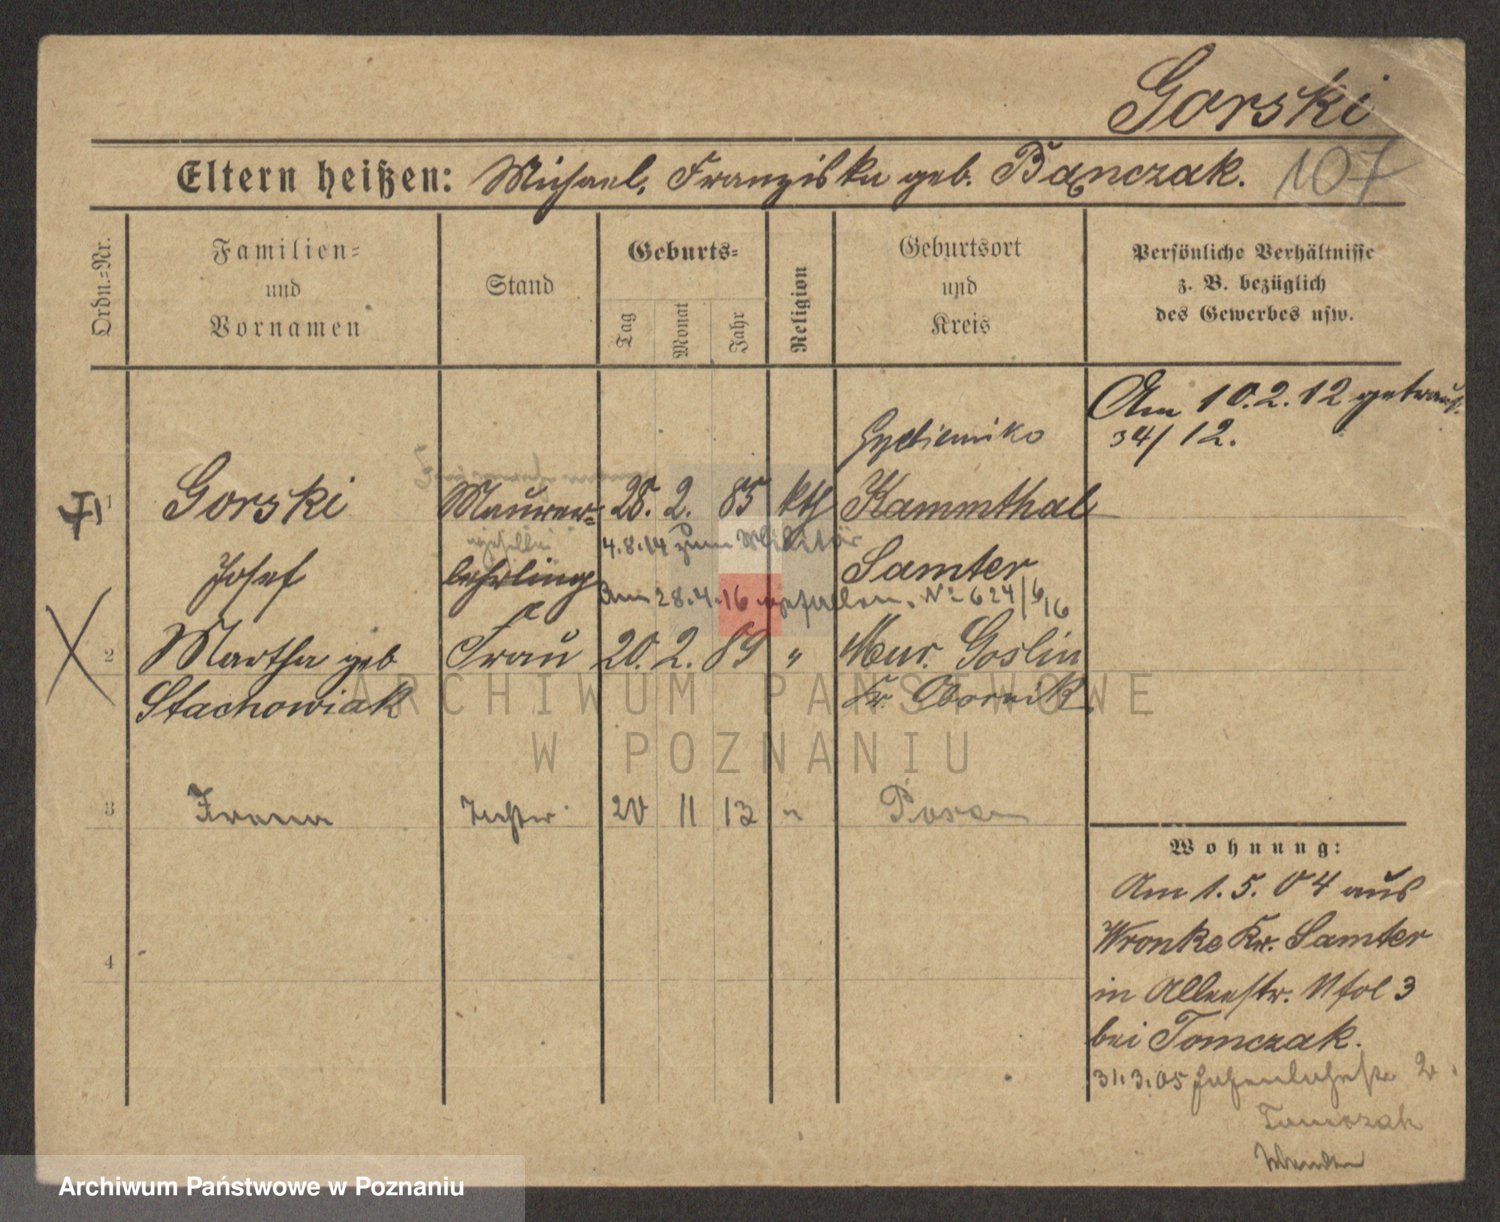 Gorski
Eltern heißen: Michael, Franziska geb. Bączak.
107
Ordn.-Nr.
Familien-
und
Vornamen
Stand
Geburts-
Tag
Monat
Jahr
Religion
Geburtsort
und
Kreis
Persönliche Verhältnisse
z. B. bezüglich
des Gewerbes usw.
Am 10.2.12 getraut.
34/12.
1 Gorski Maurer- 28. 2. 85 kth Kammthal
4.8.14 zum Militär
Josef lehrling Samter
Am 28.4.16 gefallen. No 624/6/16
2 Martha geb Frau 20. 2. 89 " Mur. Goslin
Stachowiak Kr. Obornik
3 Tochter 20 11 13 " Posen
4
Wohnung:
Am 1.5.04 aus
Wronke Kr. Samter
in Alleestr.
bei Tomczak.
31.3.05 2
Tomczak
Wenden
ARCHIWUM PAŃSTWOWE
W POZNANIU
Archiwum Państwowe w Poznaniu